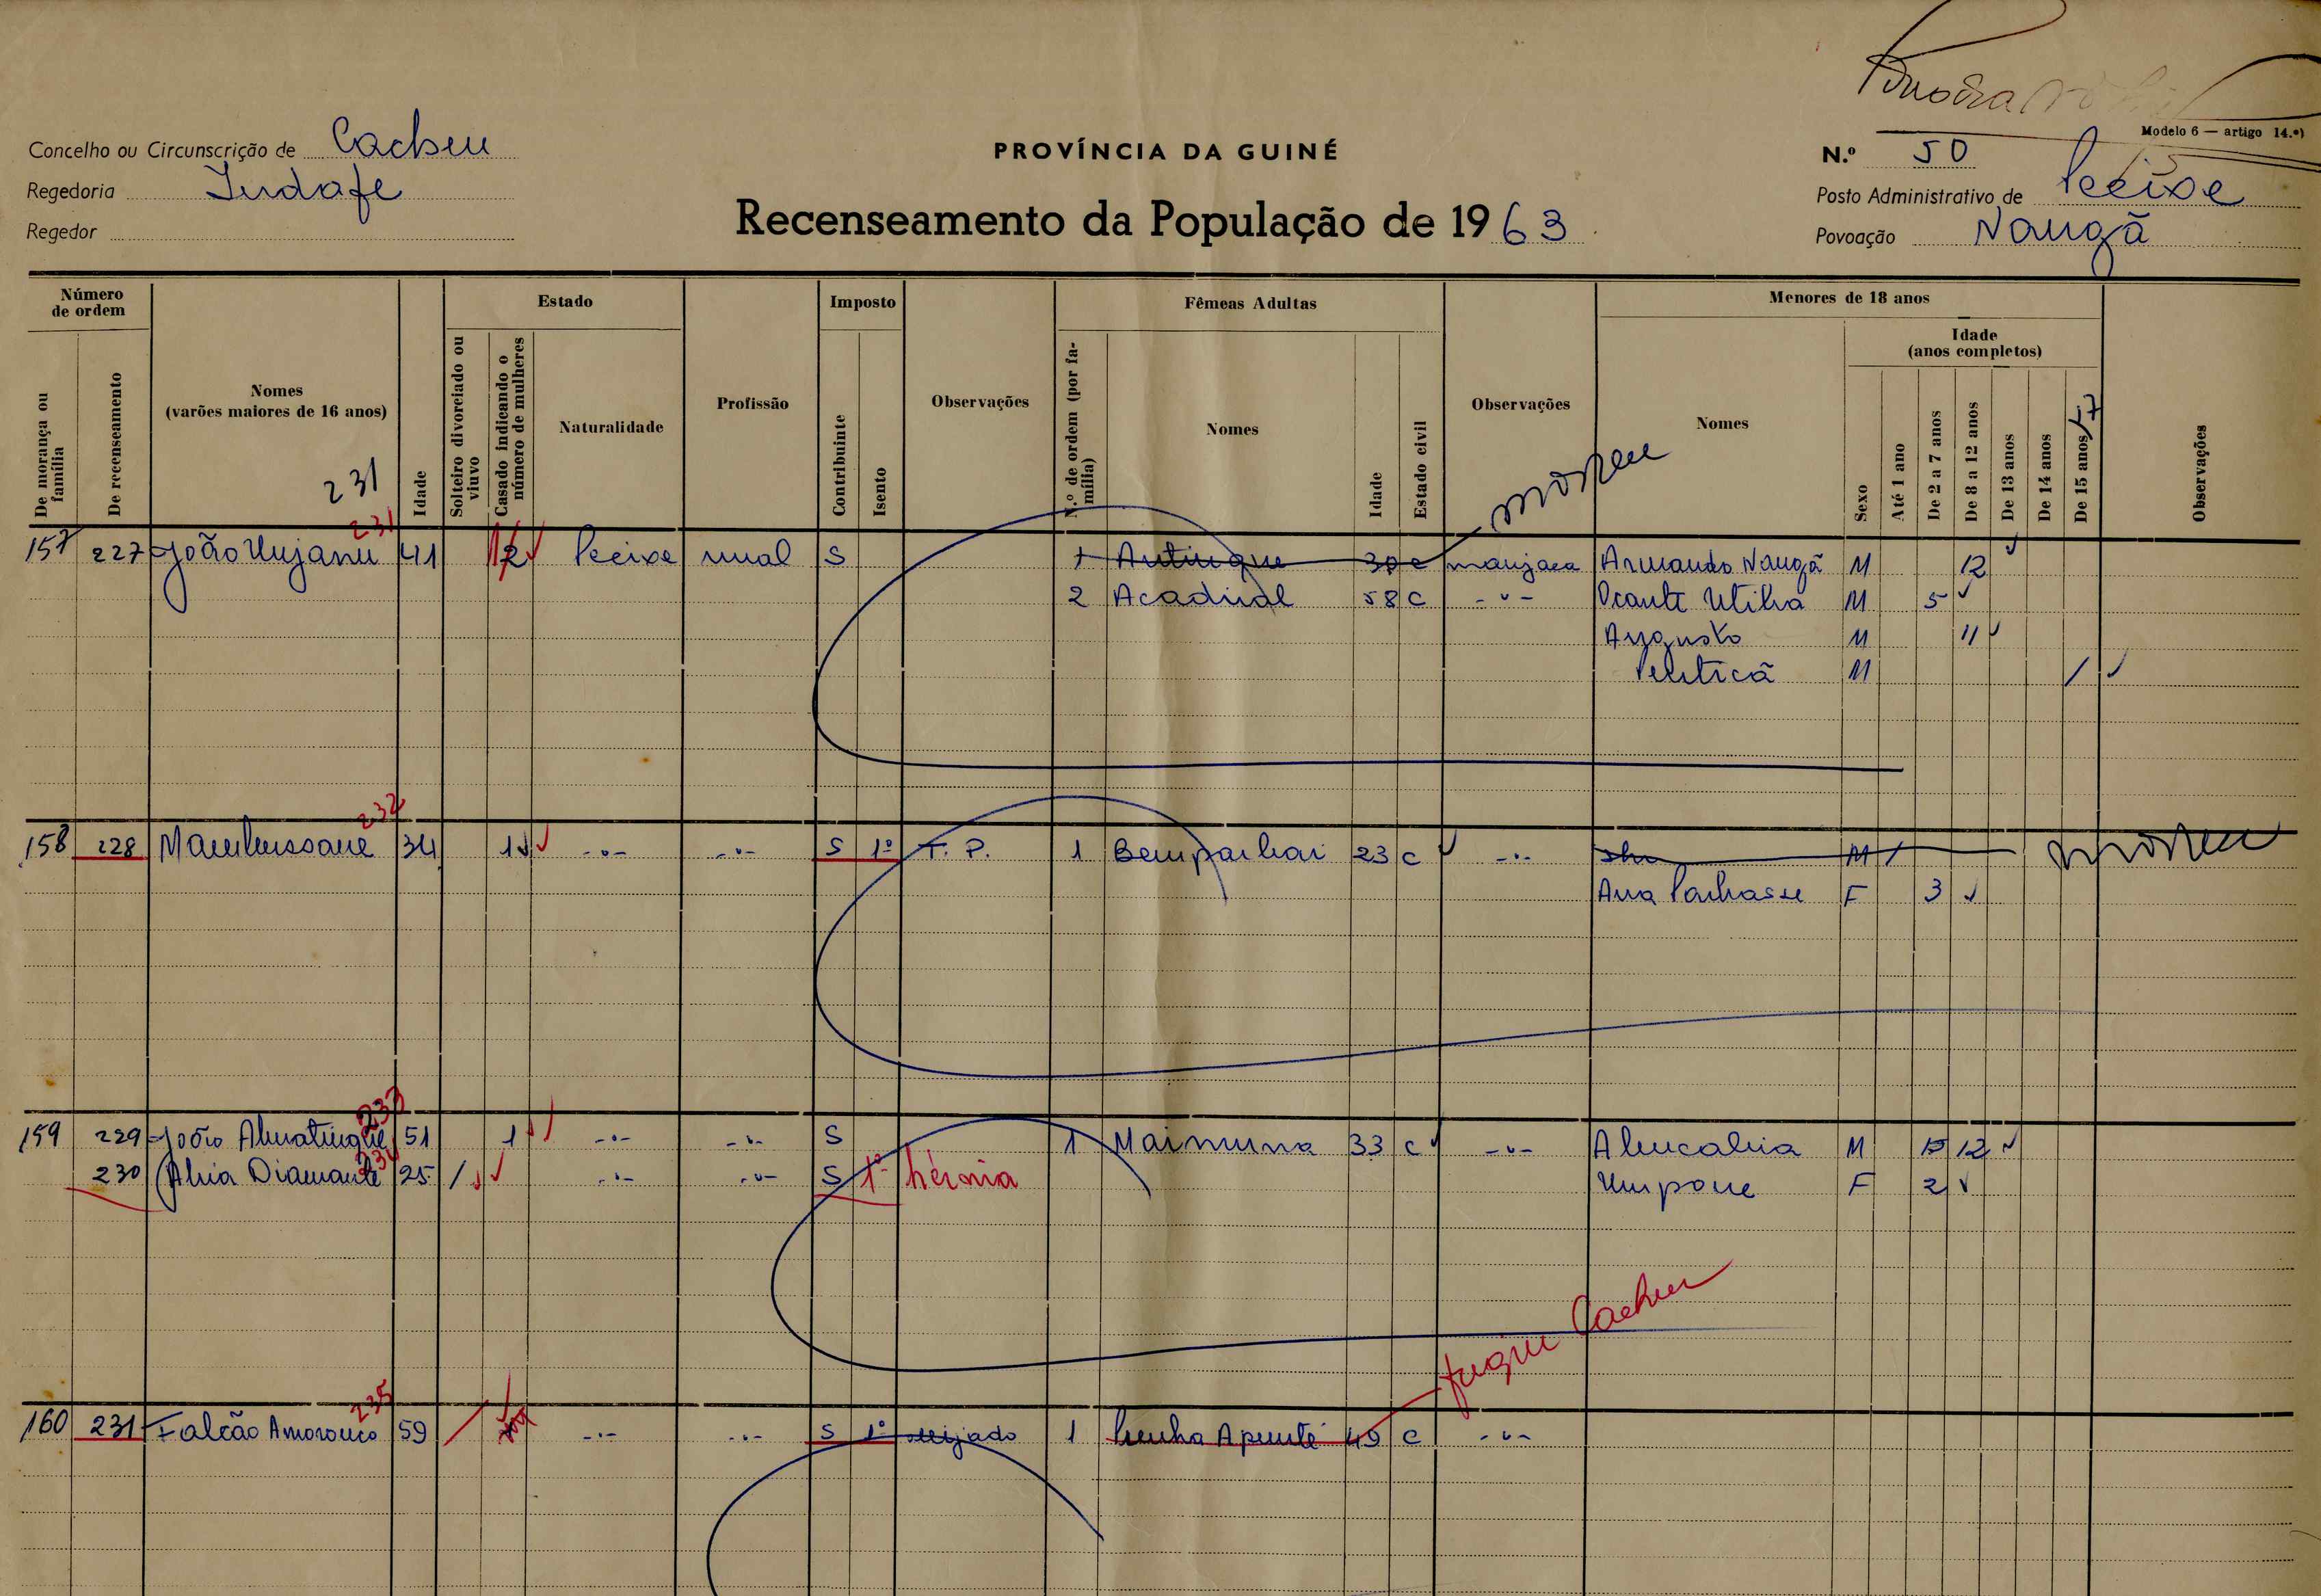 Modelo 6 — artigo 14.º)
Concelho ou Circunscrição de Cacheu
PROVÍNCIA DA GUINÉ
N.º 50
Regedoria Indafe
Posto Administrativo de Pecixe
Regedor
Recenseamento da População de 1963
Povoação Naugã
Número de ordem
Estado
Imposto
Fêmeas Adultas
Menores de 18 anos
Idade (anos completos)
De morança ou família
De recenseamento
Nomes (varões maiores de 16 anos)
231
Idade
Solteiro divorciado ou viuvo
Casado indicando o número de mulheres
Naturalidade
Profissão
Contribuinte
Isento
Observações
N.º de ordem (por família)
Nomes
Idade
Estado civil
Observações
Nomes
Sexo
Até 1 ano
De 2 a 7 anos
De 8 a 12 anos
De 13 anos
De 14 anos
De 15 anos 17
Observações
morreu
231
157 227 João Uujanu 41 2 Pecixe rural S 1 Antingue 30 c manjaca Armando Naugã M 12
2 Acadiral 58 c -"- Ocante Utilia M 5
Augusto M 11
Penticã M /
232
158 228 34 1 -"- -"- S 1º T. P. 1 23 c -"- M / morreu
Ana F 3
233
159 229 João 51 1 -"- -"- S 1 Maimuna 33 c -"- M 12
234
230 Diamante 25 / -"- -"- S 1º hérnia Umpone F 2
fugiu Cacheu
235
160 231 Falcão Amorouco 59 / -"- -"- S 1º aleijado 1 Apenté 45 c -"-